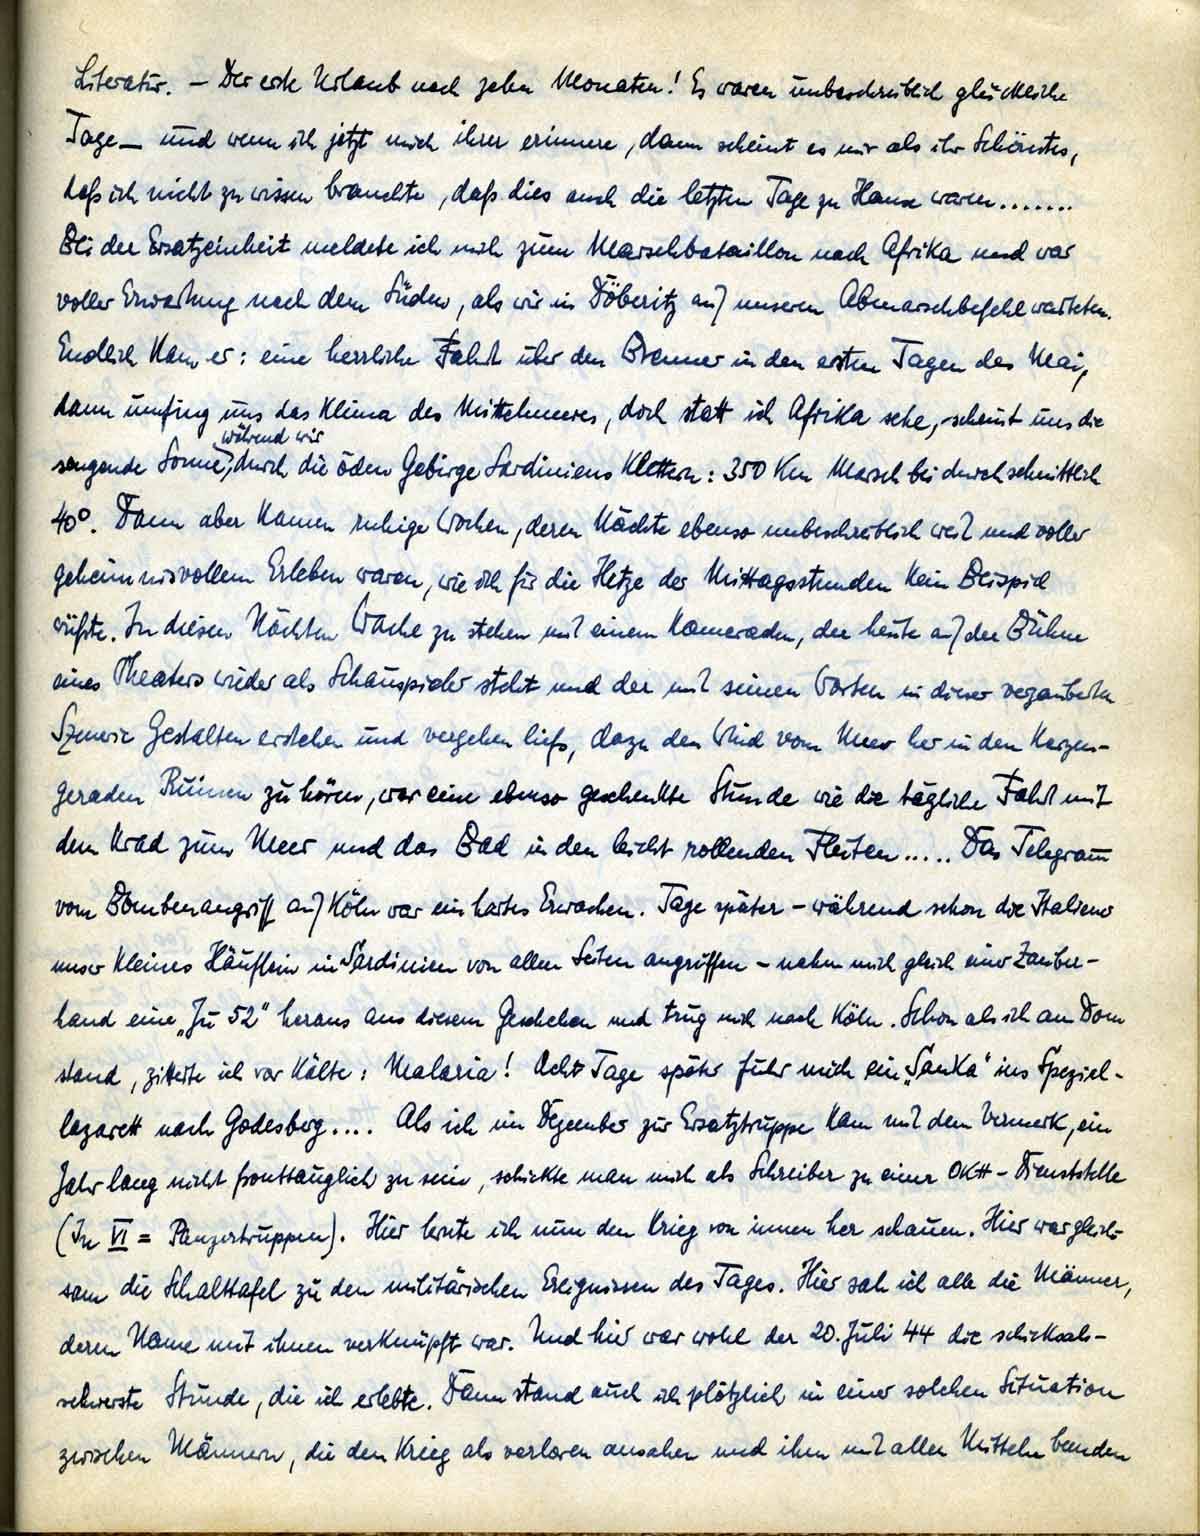 Literatur. – Der erste Urlaub nach zehn Monaten! Es waren unbeschreiblich glückliche
Tage – und wenn ich jetzt mich ihrer erinnere, dann scheint es mir als ihr Schönstes,
daß ich nicht zu wissen brauchte, daß dies auch die letzten Tage zu Hause waren.......
Bei der Ersatzeinheit meldete ich mich zum Marschbataillon nach Afrika und war
voller Erwartung nach dem Süden, als wir in Döberitz auf unseren Abmarschbefehl warteten.
Endlich kam er: eine herrliche Fahrt über den Brenner in den ersten Tagen des Mai,
dann umfing uns das Klima des Mittelmeeres, doch statt ich Afrika sehe, scheint uns die
während wir
sengende Sonne, durch die öden Gebirge Sardiniens klettern: 350 Km Marsch bei durchschnittlich
40°. Dann aber kamen ruhige Wochen, deren Nächte ebenso unbeschreiblich weit und voller
geheimnisvollem Erleben waren, wie ich für die Hetze der Mittagsstunden kein Beispiel
wüßte. In diesen Nächten Wache zu stehen mit einem Kameraden, der heute auf der Bühne
eines Theaters wieder als Schauspieler steht und der mit seinen Worten in dieser verzauberten
Szenerie Gestalten erstehen und vergehen ließ, dazu den Wind vom Meer her in den Kerzen-
geraden Ruinen zu hören, war eine ebenso geschenkte Stunde wie die tägliche Fahrt mit
dem Krad zum Meer und das Bad in den leicht rollenden Fluten..... Das Telegram
vom Bombenangriff auf Köln war ein hartes Erwachen. Tage später – während schon die Italiener
unser kleines Häuflein in Sardinien von allen Seiten angriffen – nahm mich gleich einer Zauber-
hand eine „Ju 52" heraus aus diesem Geschehen und trug mich nach Köln. Schon als ich am Dom
stand, zitterte ich vor Kälte: Malaria! Acht Tage später fuhr mich ein „Sanka" ins Spezial-
lazarett nach Godesberg.... Als ich im Dezember zur Ersatztruppe kam mit dem Vermerk, ein
Jahr lang nicht fronttauglich zu sein, schickte man mich als Schreiber zu einer OKH-Dienststelle
(In VI = Panzertruppen). Hier lernte ich nun den Krieg von innen her schauen. Hier war gleich-
sam die Schalttafel zu den militärischen Ereignissen des Tages. Hier sah ich alle die Männer,
deren Name mit ihnen verknüpft war. Und hier war wohl der 20. Juli 44 die schicksals-
schwerste Stunde, die ich erlebte. Dann stand auch ich plötzlich in einer solchen Situation
zwischen Männern, die den Krieg als verloren ansahen und ihn mit allen Mitteln beenden